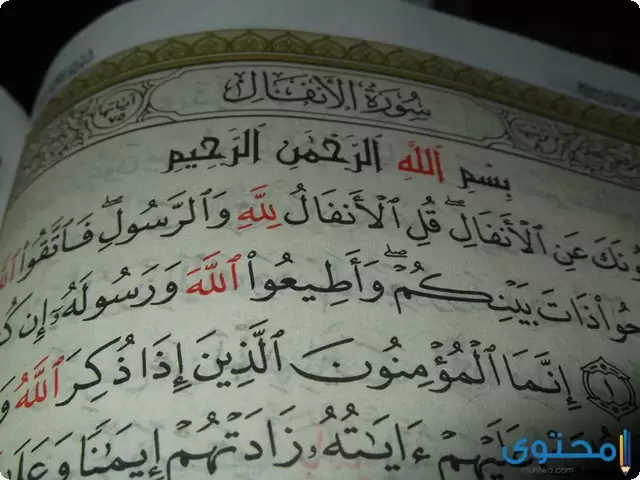 سُورَةُ الأَنفَالِ
بِسْمِ ٱللَّهِ ٱلرَّحْمَٰنِ ٱلرَّحِيمِ
عَنِ ٱلْأَنفَالِۖ قُلِ ٱلْأَنفَالُ لِلَّهِ وَٱلرَّسُولِۖ فَٱتَّقُوا۟
ذَاتَ بَيْنِكُمْۖ وَأَطِيعُوا۟ ٱللَّهَ وَرَسُولَهُۥٓ إِن
١ إِنَّمَا ٱلْمُؤْمِنُونَ ٱلَّذِينَ إِذَا ذُكِرَ ٱللَّهُ
ءَايَٰتُهُۥ زَادَتْهُمْ إِيمَٰنًا وَعَلَىٰ
محتوى
muhtwa.com